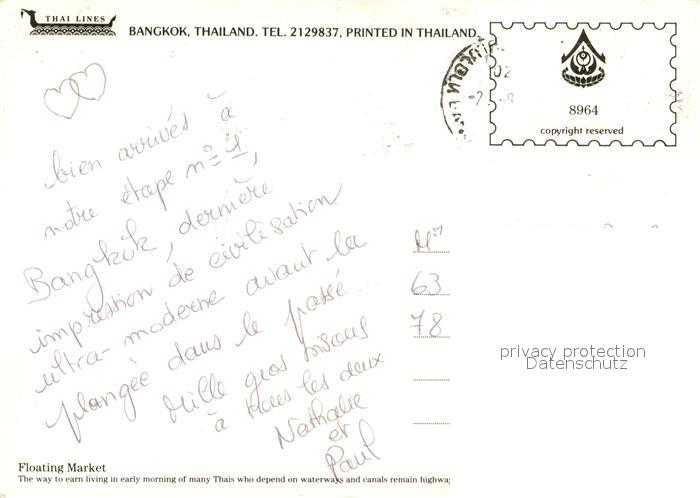 THAI LINES
BANGKOK, THAILAND. TEL. 2129837, PRINTED IN THAILAND.
8964
copyright reserved
bien arrivés à
notre étape n° 1,
Bangkok, dernière
impression de civilisation
ultra-moderne avant la
plongée dans le passé
Mille gros bisous
à tous les deux
Nathalie
et
Paul
63
78
privacy protection
Datenschutz
Floating Market
The way to earn living in early morning of many Thais who depend on waterways and canals remain highway